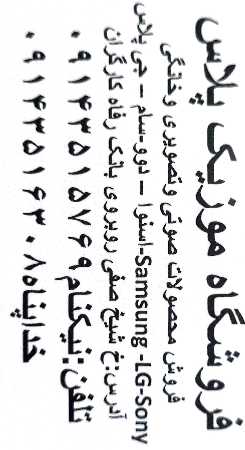 فروشگاه موزیک پلاس
فروش محصولات صوتی و تصویری و خانگی
Samsung -LG-Sony-اسنوا – دوو-سام – جی پلاس
آدرس:خ شیخ صفی روبروی بانک رفاه کارگران
تلفن :نیکنام ۰۹۱۴۳۵۱۵۷۶۹
خداپناه ۰۹۱۴۳۵۱۶۳۰۸